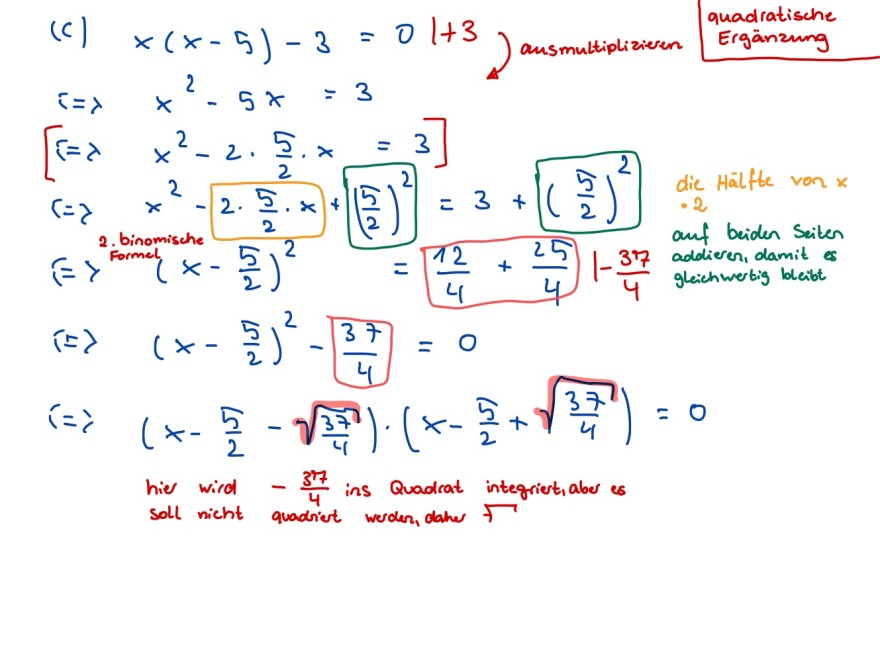 quadratische
Ergänzung
(c) x(x-5) - 3 = 0 |+3
ausmultiplizieren
<=> x² - 5x = 3
[<=> x² - 2 · 5/2 · x = 3]
<=> x² - 2 · 5/2 · x + (5/2)² = 3 + (5/2)²
die Hälfte von x
· 2
auf beiden Seiten
addieren, damit es
gleichwertig bleibt
2. binomische
Formel
<=> (x - 5/2)² = 12/4 + 25/4 |- 37/4
<=> (x - 5/2)² - 37/4 = 0
<=> (x - 5/2 - √37/4) · (x - 5/2 + √37/4) = 0
hier wird - 37/4 ins Quadrat integriert, aber es
soll nicht quadriert werden, daher √